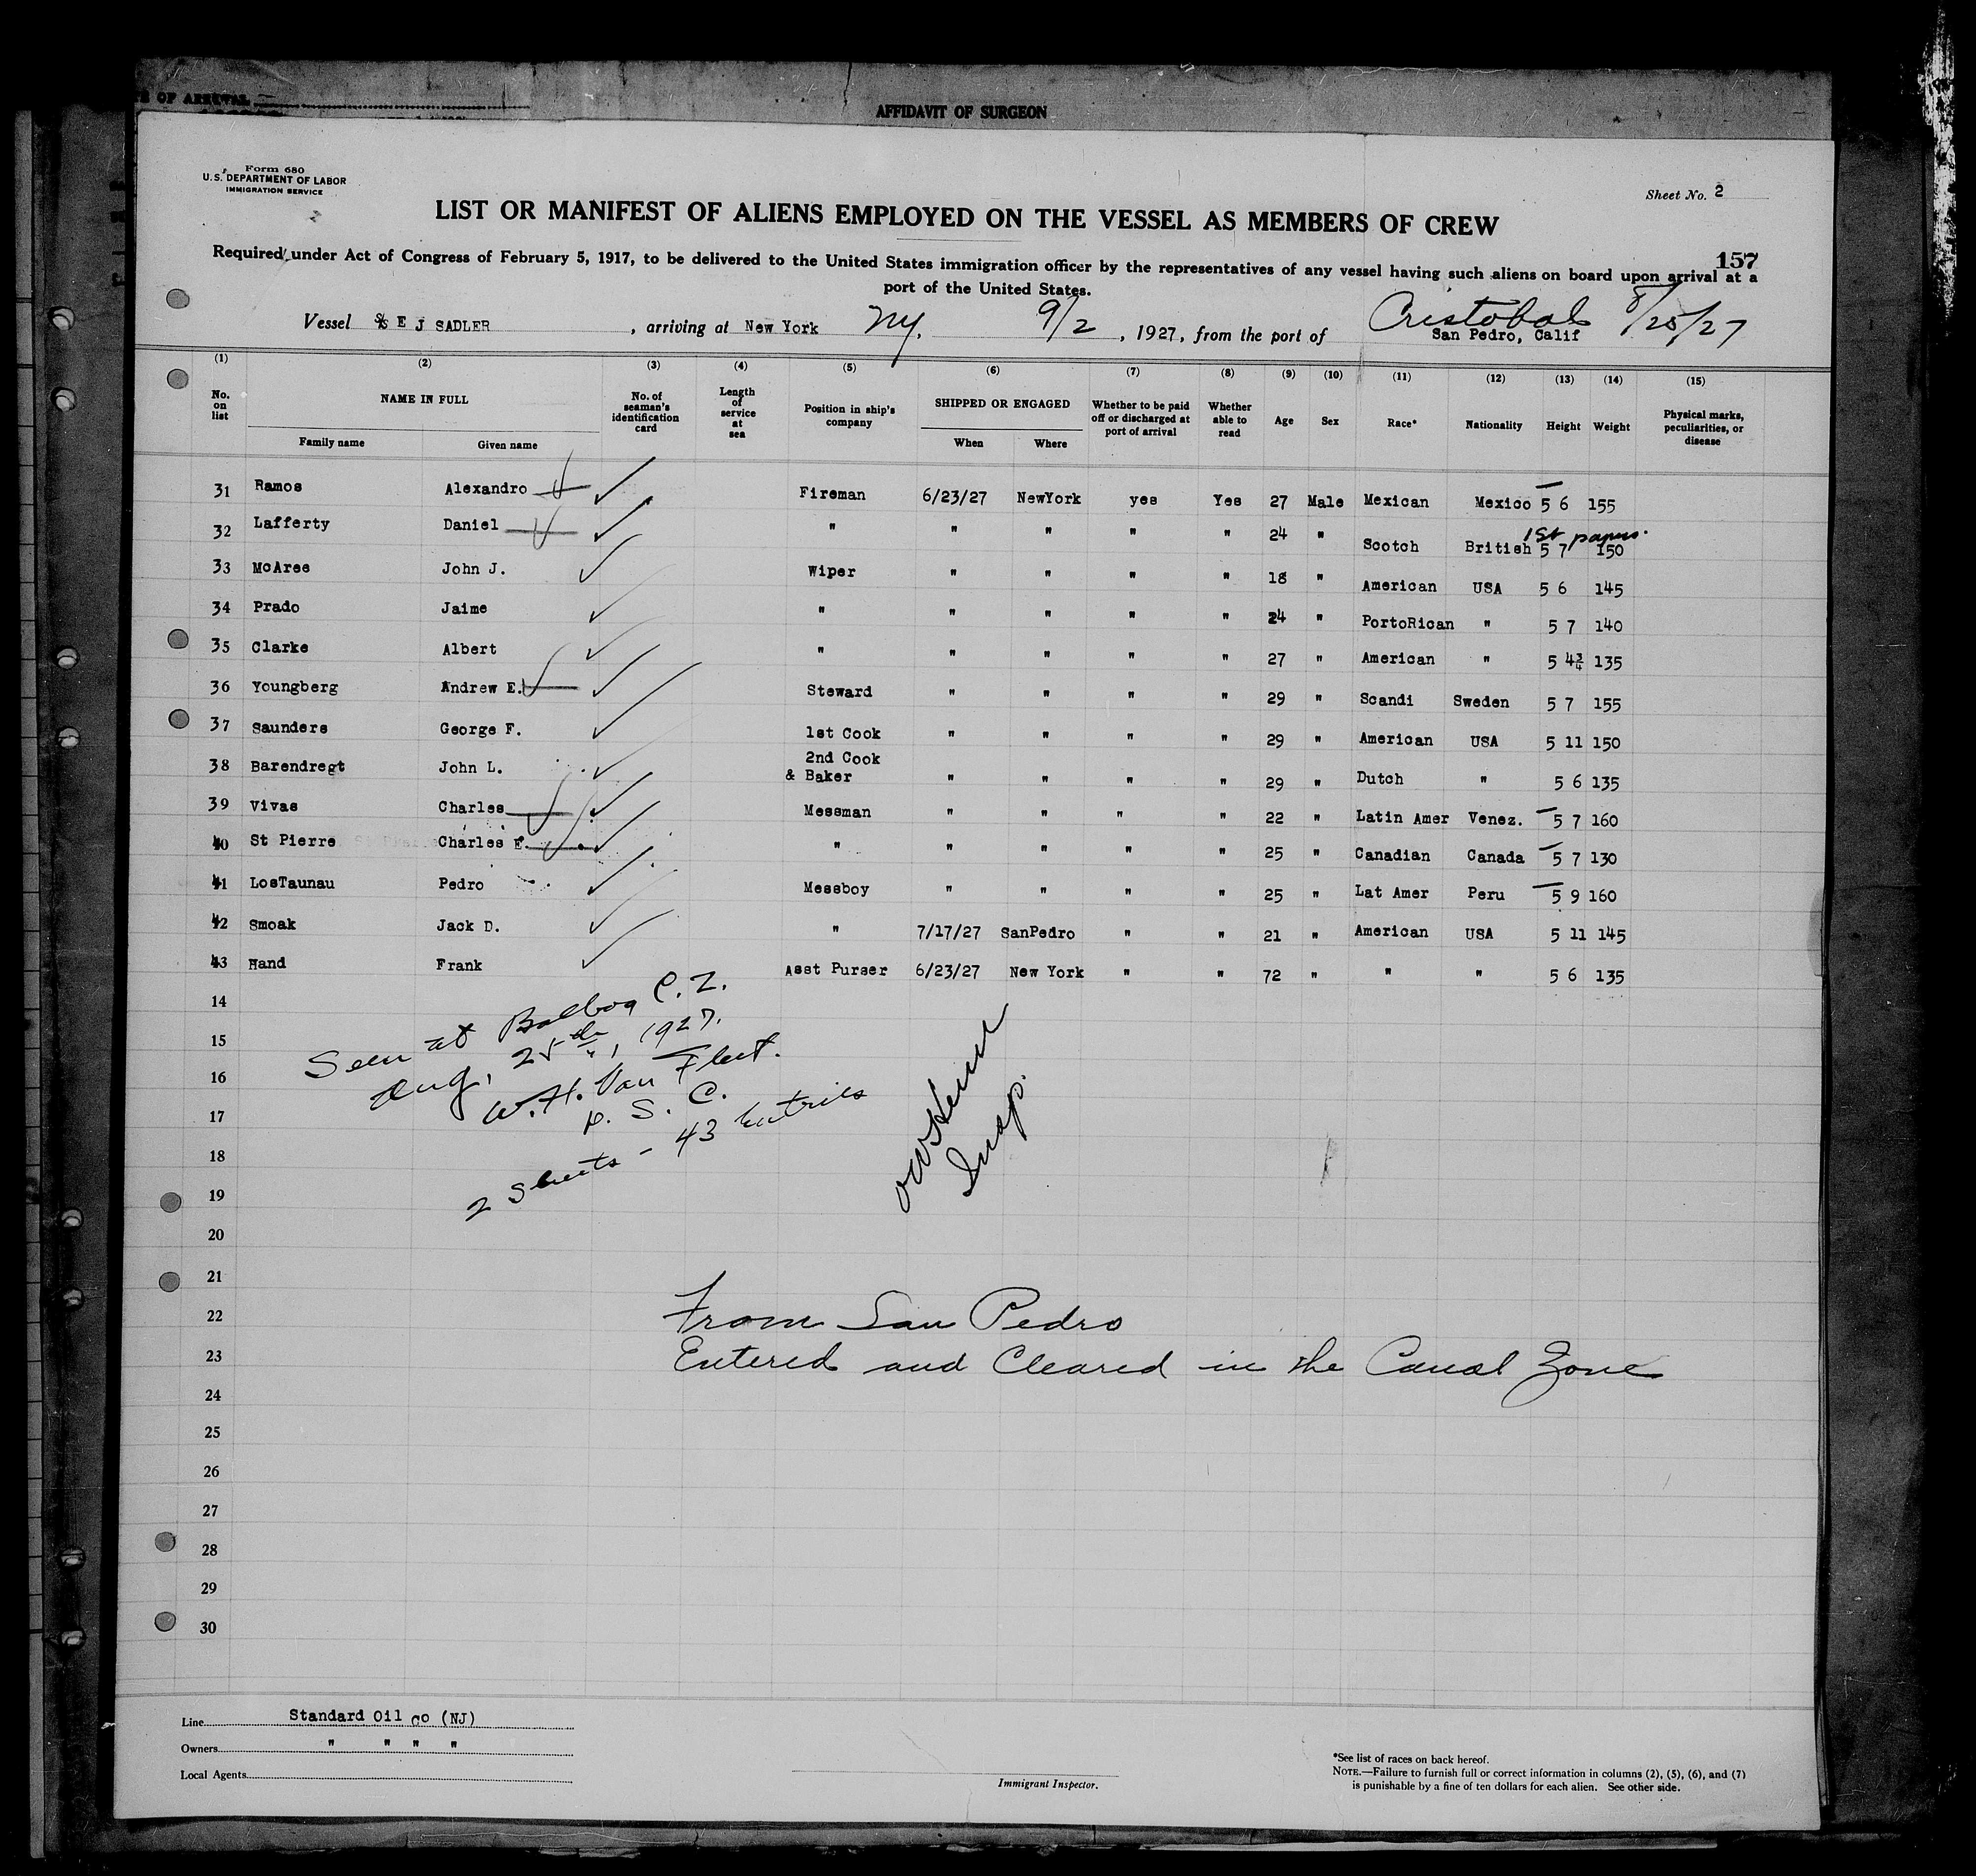 AFFIDAVIT OF SURGEON
Form 680
U.S. DEPARTMENT OF LABOR
IMMIGRATION SERVICE
Sheet No. 2
LIST OR MANIFEST OF ALIENS EMPLOYED ON THE VESSEL AS MEMBERS OF CREW
157
Required under Act of Congress of February 5, 1917, to be delivered to the United States immigration officer by the representatives of any vessel having such aliens on board upon arrival at a
port of the United States.
Vessel S/S E J SADLER , arriving at New York NY. 9/2 , 1927, from the port of Cristobal 8/25/27
San Pedro, Calif
(1) (2) (3) (4) (5) (6) (7) (8) (9) (10) (11) (12) (13) (14) (15)
No. on list NAME IN FULL Family name Given name No. of seaman's identification card Length of service at sea Position in ship's company SHIPPED OR ENGAGED When Where Whether to be paid off or discharged at port of arrival Whether able to read Age Sex Race* Nationality Height Weight Physical marks, peculiarities, or disease
31 Ramos Alexandro Fireman 6/23/27 NewYork yes Yes 27 Male Mexican Mexico 5 6 155
1st papers.
32 Lafferty Daniel " " " " " 24 " Scotch British 5 7 150
33 McAree John J. Wiper " " " " 18 " American USA 5 6 145
34 Prado Jaime " " " " " 24 " PortoRican " 5 7 140
35 Clarke Albert " " " " " 27 " American " 5 4¾ 135
36 Youngberg Andrew E. Steward " " " " 29 " Scandi Sweden 5 7 155
37 Saunders George F. 1st Cook " " " " 29 " American USA 5 11 150
38 Barendregt John L. 2nd Cook & Baker " " " " 29 " Dutch " 5 6 135
39 Vivas Charles Messman " " " " 22 " Latin Amer Venez. 5 7 160
40 St Pierre Charles E. " " " " " 25 " Canadian Canada 5 7 130
41 LosTaunau Pedro Messboy " " " " 25 " Lat Amer Peru 5 9 160
42 Smoak Jack D. " 7/17/27 SanPedro " " 21 " American USA 5 11 145
43 Hand Frank Asst Purser 6/23/27 New York " " 72 " " " 5 6 135
14
15
16
17
18
19
20
21
22
23
24
25
26
27
28
29
30
Seen at Balboa C.Z.
Aug. 25th, 1927.
W.H. Van Fleet.
2 Sheets - 43 Entries
Insp.
From San Pedro
Entered and Cleared in the Canal Zone
Line Standard Oil co (NJ)
Owners " " " "
Local Agents
Immigrant Inspector.
*See list of races on back hereof.
NOTE.—Failure to furnish full or correct information in columns (2), (5), (6), and (7)
is punishable by a fine of ten dollars for each alien. See other side.